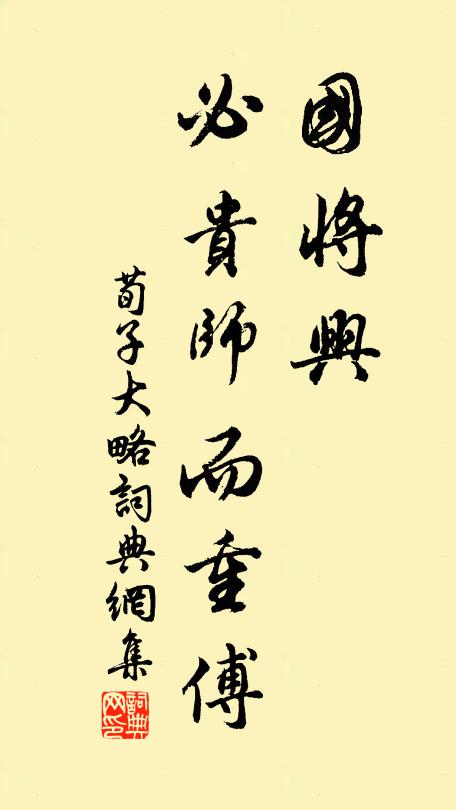 國將興
必貴師而重傅
荀子大略詞典網集
詞典网印